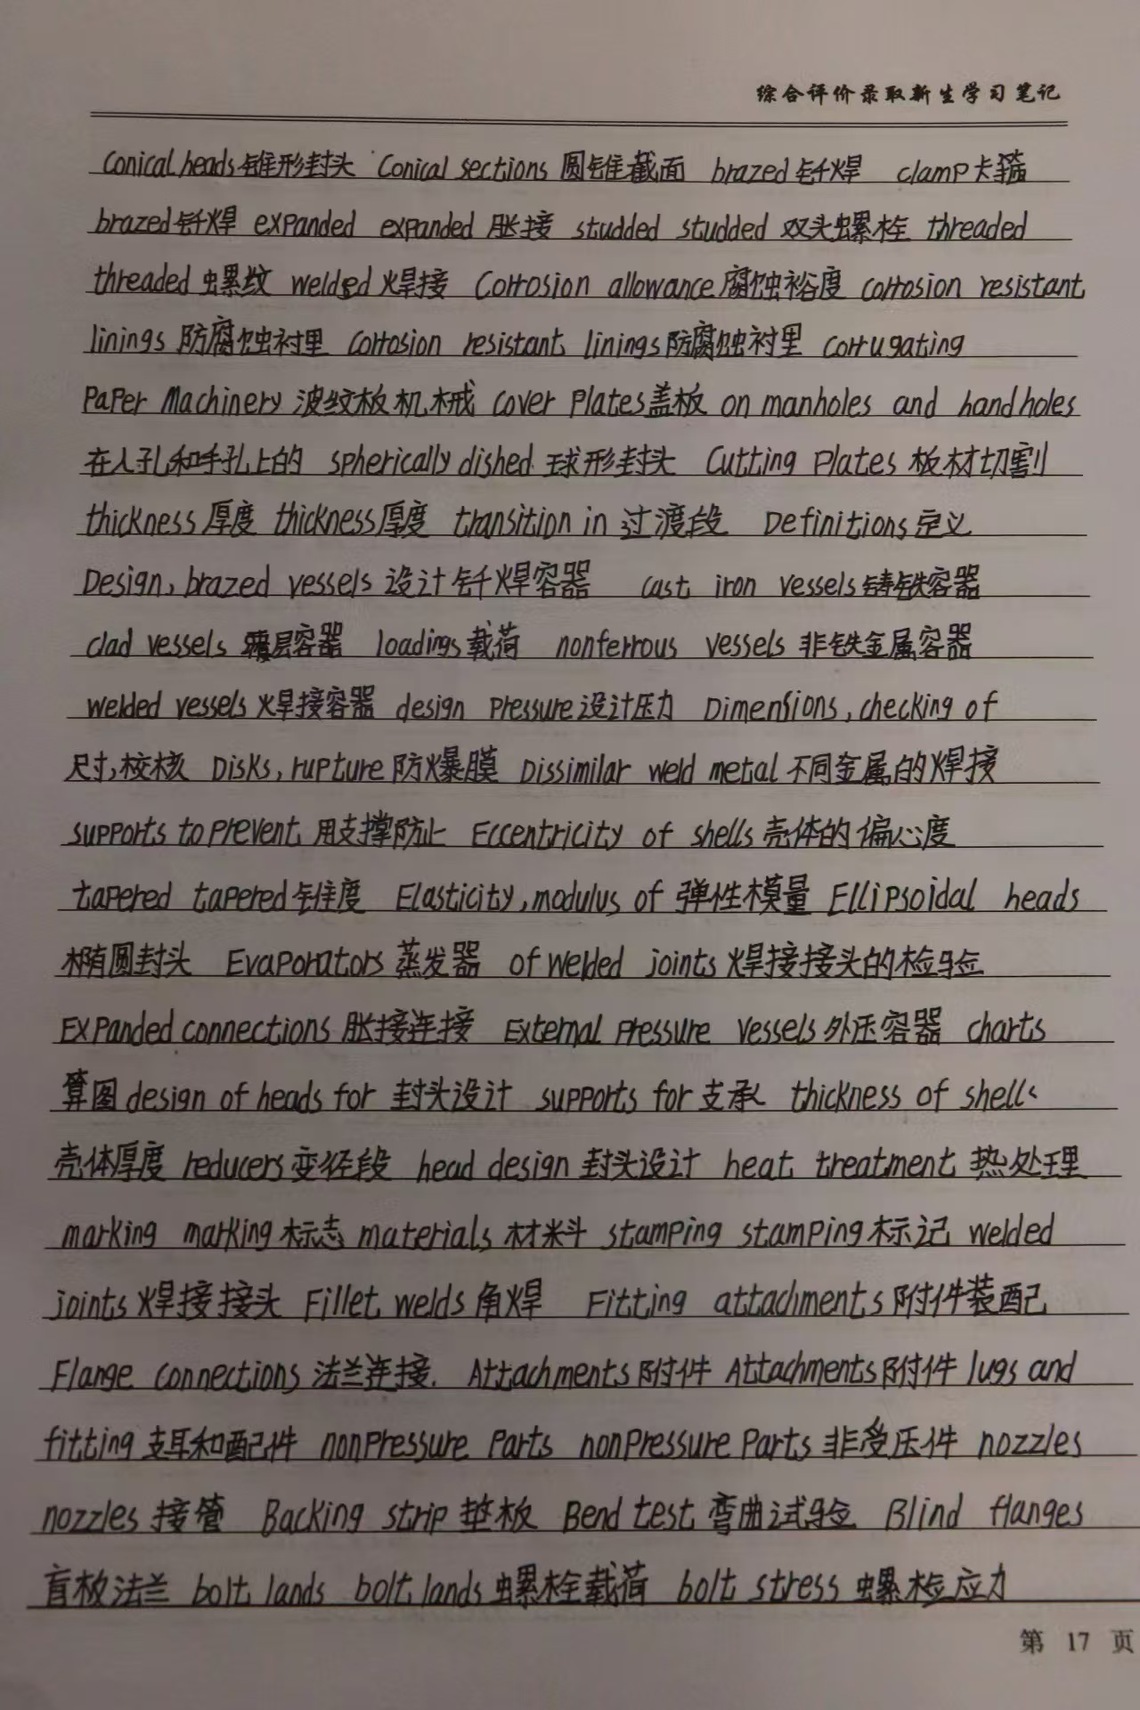 综合评价录取新生学习笔记
conical heads锥形封头 Conical sections 圆锥截面 brazed钎焊 clamp卡箍
brazed钎焊 expanded expanded 胀接 studded studded 双头螺栓 threaded
threaded 螺纹 welded 焊接 Corrosion allowance腐蚀裕度 corrosion resistant
linings 防腐蚀衬里 corrosion resistant linings防腐蚀衬里 corrugating
Paper Machinery 波纹板机械 cover Plates盖板 on manholes and handholes
在人孔和手孔上的 spherically dished 球形封头 Cutting Plates 板材切割
thickness厚度 thickness厚度 transition in 过渡段 Definitions定义
Design, brazed vessels 设计钎焊容器 cast iron vessels铸铁容器
clad vessels 覆层容器 loadings载荷 nonferrous vessels 非铁金属容器
welded vessels 焊接容器 design Pressure设计压力 Dimensions, checking of
尺寸,校核 Disks, rupture 防爆膜 Dissimilar weld metal 不同金属的焊接
supports to prevent 用支撑防止 Eccentricity of shells 壳体的偏心度
tapered tapered锥度 Elasticity, modulus of 弹性模量 Ellipsoidal heads
椭圆封头 Evaporators 蒸发器 of welded joints 焊接接头的检验
Expanded connections 胀接连接 External Pressure vessels外压容器 charts
算图 design of heads for 封头设计 supports for支承 thickness of shells
壳体厚度 reducers变径段 head design 封头设计 heat treatment 热处理
marking marking标志 materials 材料 stamping stamping标记 welded
joints焊接接头 Fillet welds角焊 Fitting attachments附件装配
Flange connections 法兰连接. Attachments附件 Attachments附件 lugs and
fitting支耳和配件 nonPressure Parts nonPressure Parts 非受压件 nozzles
nozzles 接管 Backing strip 垫板 Bend test 弯曲试验 Blind flanges
盲板法兰 bolt lands bolt lands螺栓载荷 bolt stress 螺检应力
第 17 页